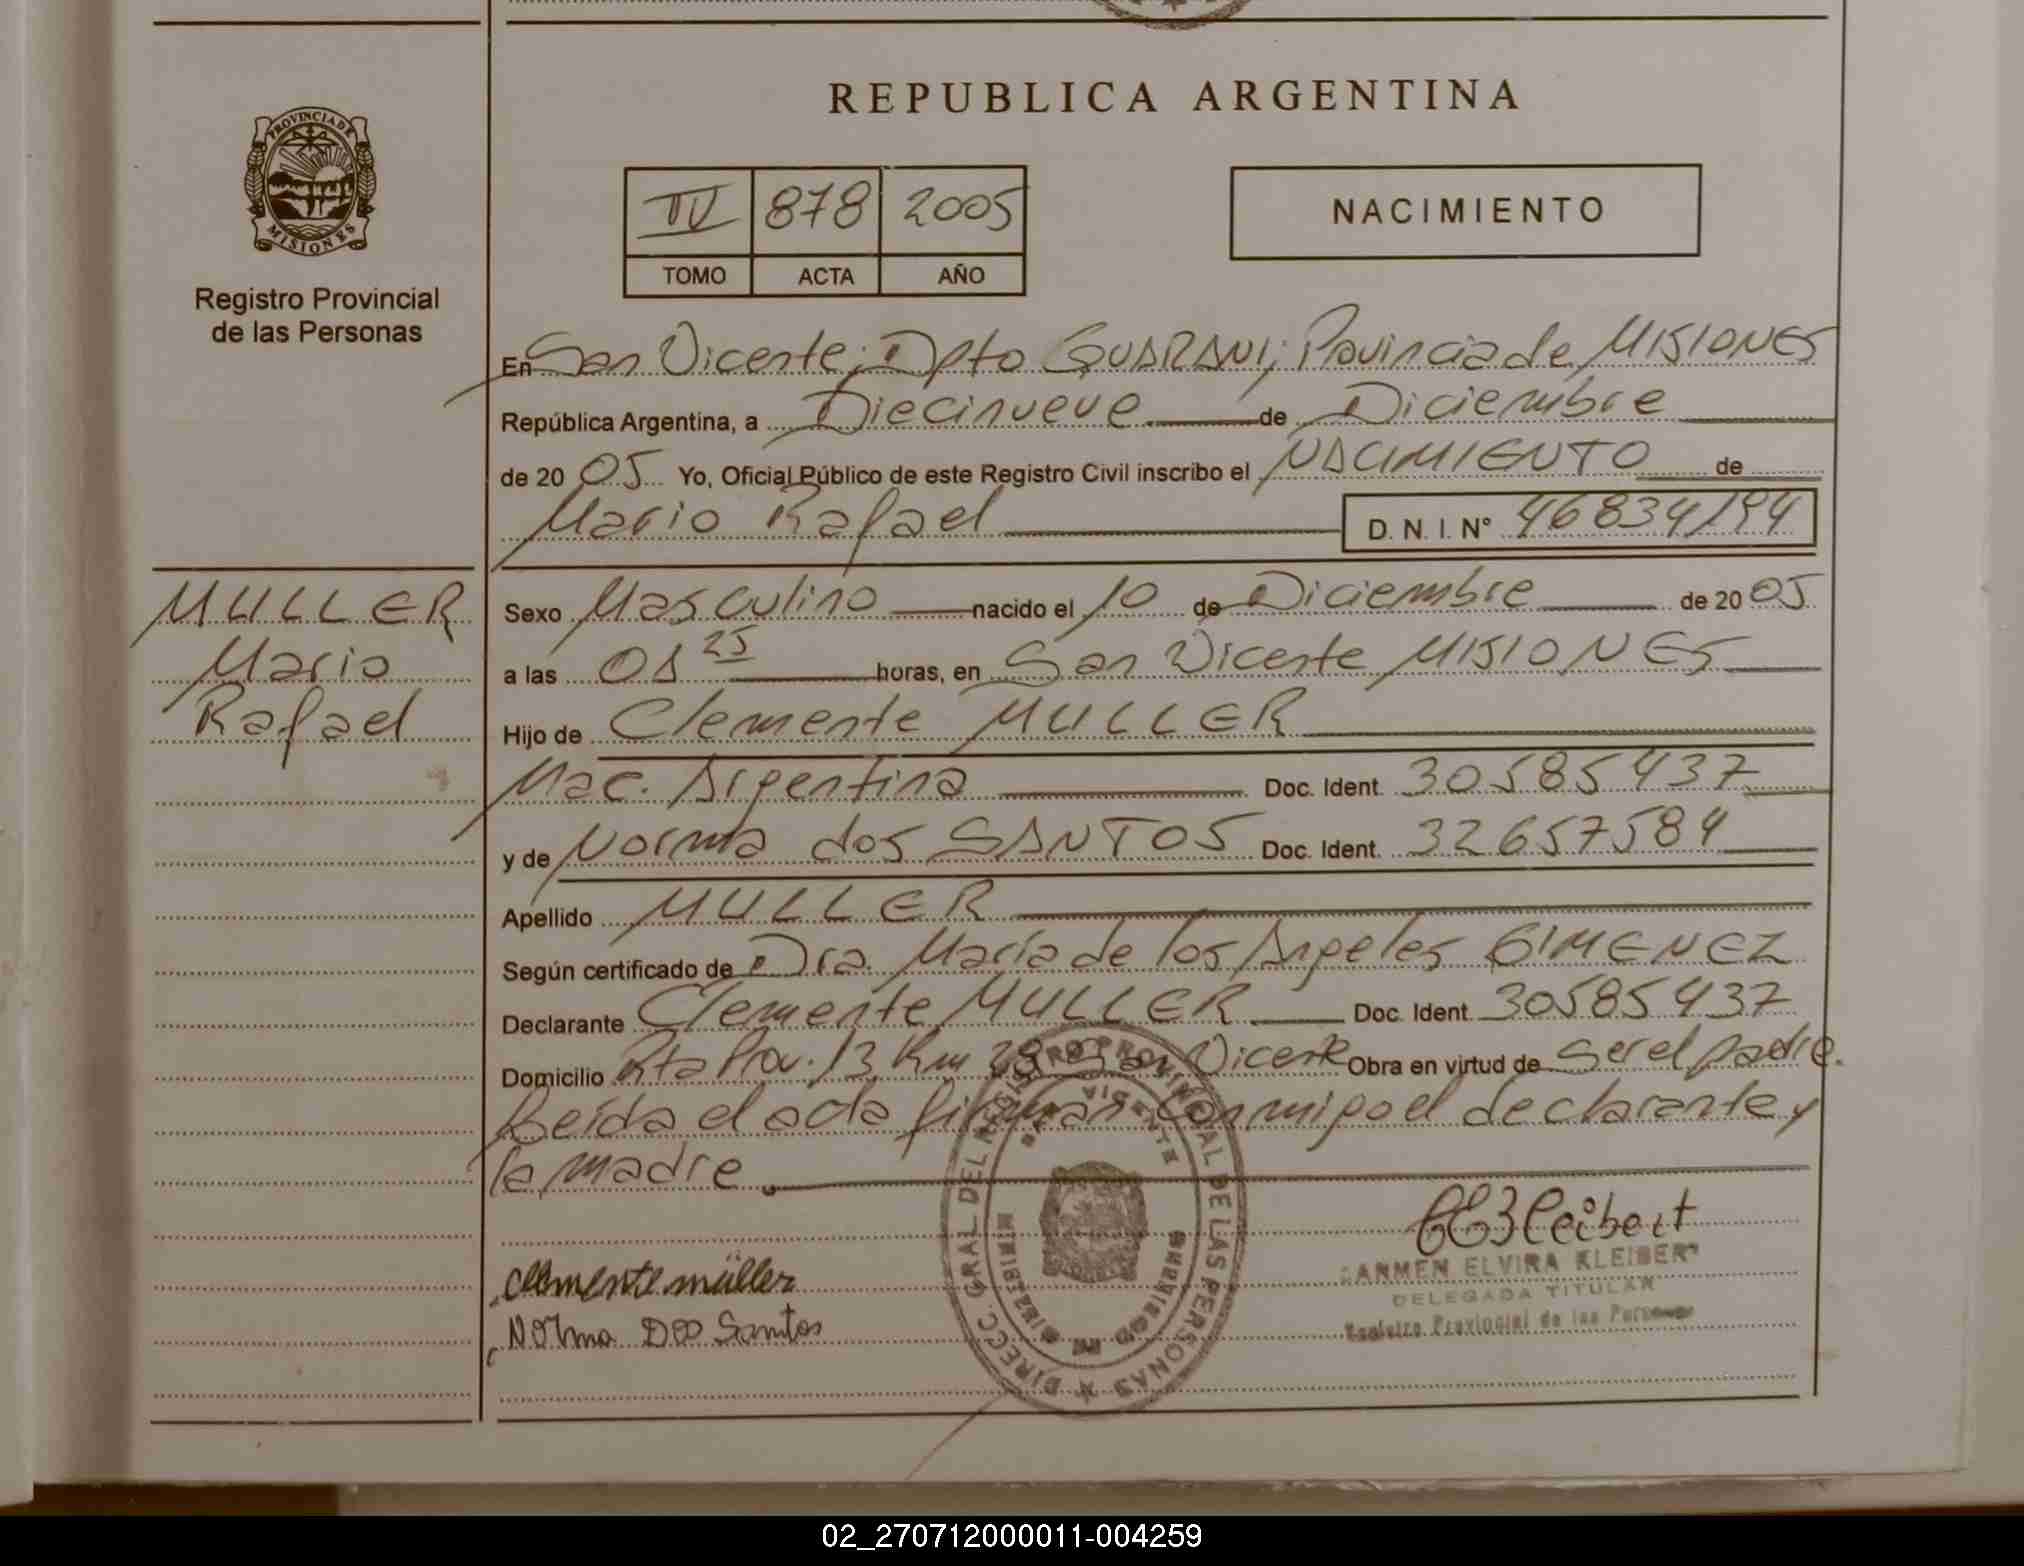 REPUBLICA ARGENTINA
PROVINCIA DE
MISIONES
Registro Provincial
de las Personas
IV 878 2005
TOMO ACTA AÑO
NACIMIENTO
En San Vicente; Dpto GUARANI; Provincia de MISIONES
República Argentina, a Diecinueve de Diciembre
de 2005 Yo, Oficial Público de este Registro Civil inscribo el NACIMIENTO de
Mario Rafael D. N. I. N° 46834194
MULLER
Mario
Rafael
Sexo Masculino nacido el 10 de Diciembre de 2005
a las 01 25 horas, en San Vicente MISIONES
Hijo de Clemente MULLER
Nac. Argentina Doc. Ident. 30585437
y de Norma dos SANTOS Doc. Ident. 32657584
Apellido MULLER
Según certificado de Dra. María de los Angeles GIMENEZ
Declarante Clemente MULLER Doc. Ident. 30585437
Domicilio Rta Prov. 13 Km 28 San Vicente Obra en virtud de ser el padre.
Leída el acta firman conmigo el declarante y
la madre.
DIRECC. GRAL. DEL REGISTRO PROVINCIAL DE LAS PERSONAS
SAN VICENTE
clemente müller
Norma Dos Santos
CEKleibert
CARMEN ELVIRA KLEIBERT
DELEGADA TITULAR
Registro Provincial de las Personas
02_270712000011-004259